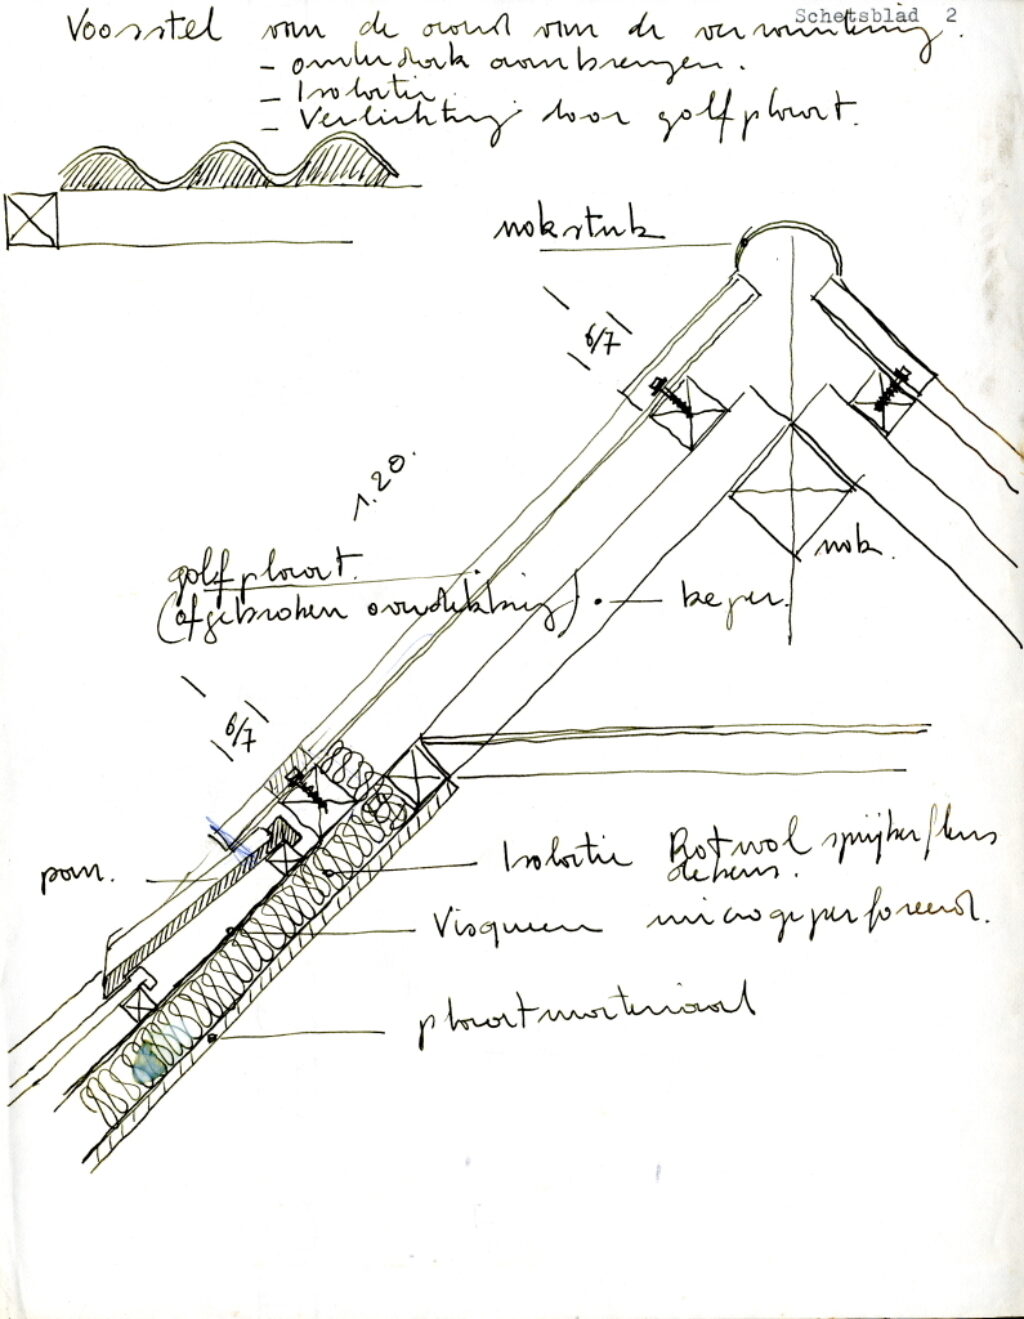 Schetsblad 2
Voorstel van de aard van de verwarming.
- onderdak aanbrengen.
- Isolatie
- Verlichting door golfplaat.
nokstuk
6/7
1.20.
nok.
golfplaat.
(afgebroken aanduiding)
keper.
6/7
Isolatie Rotwol spijkerflens
dekens.
pan.
Visqueen microgeperforeerd.
plaatmateriaal